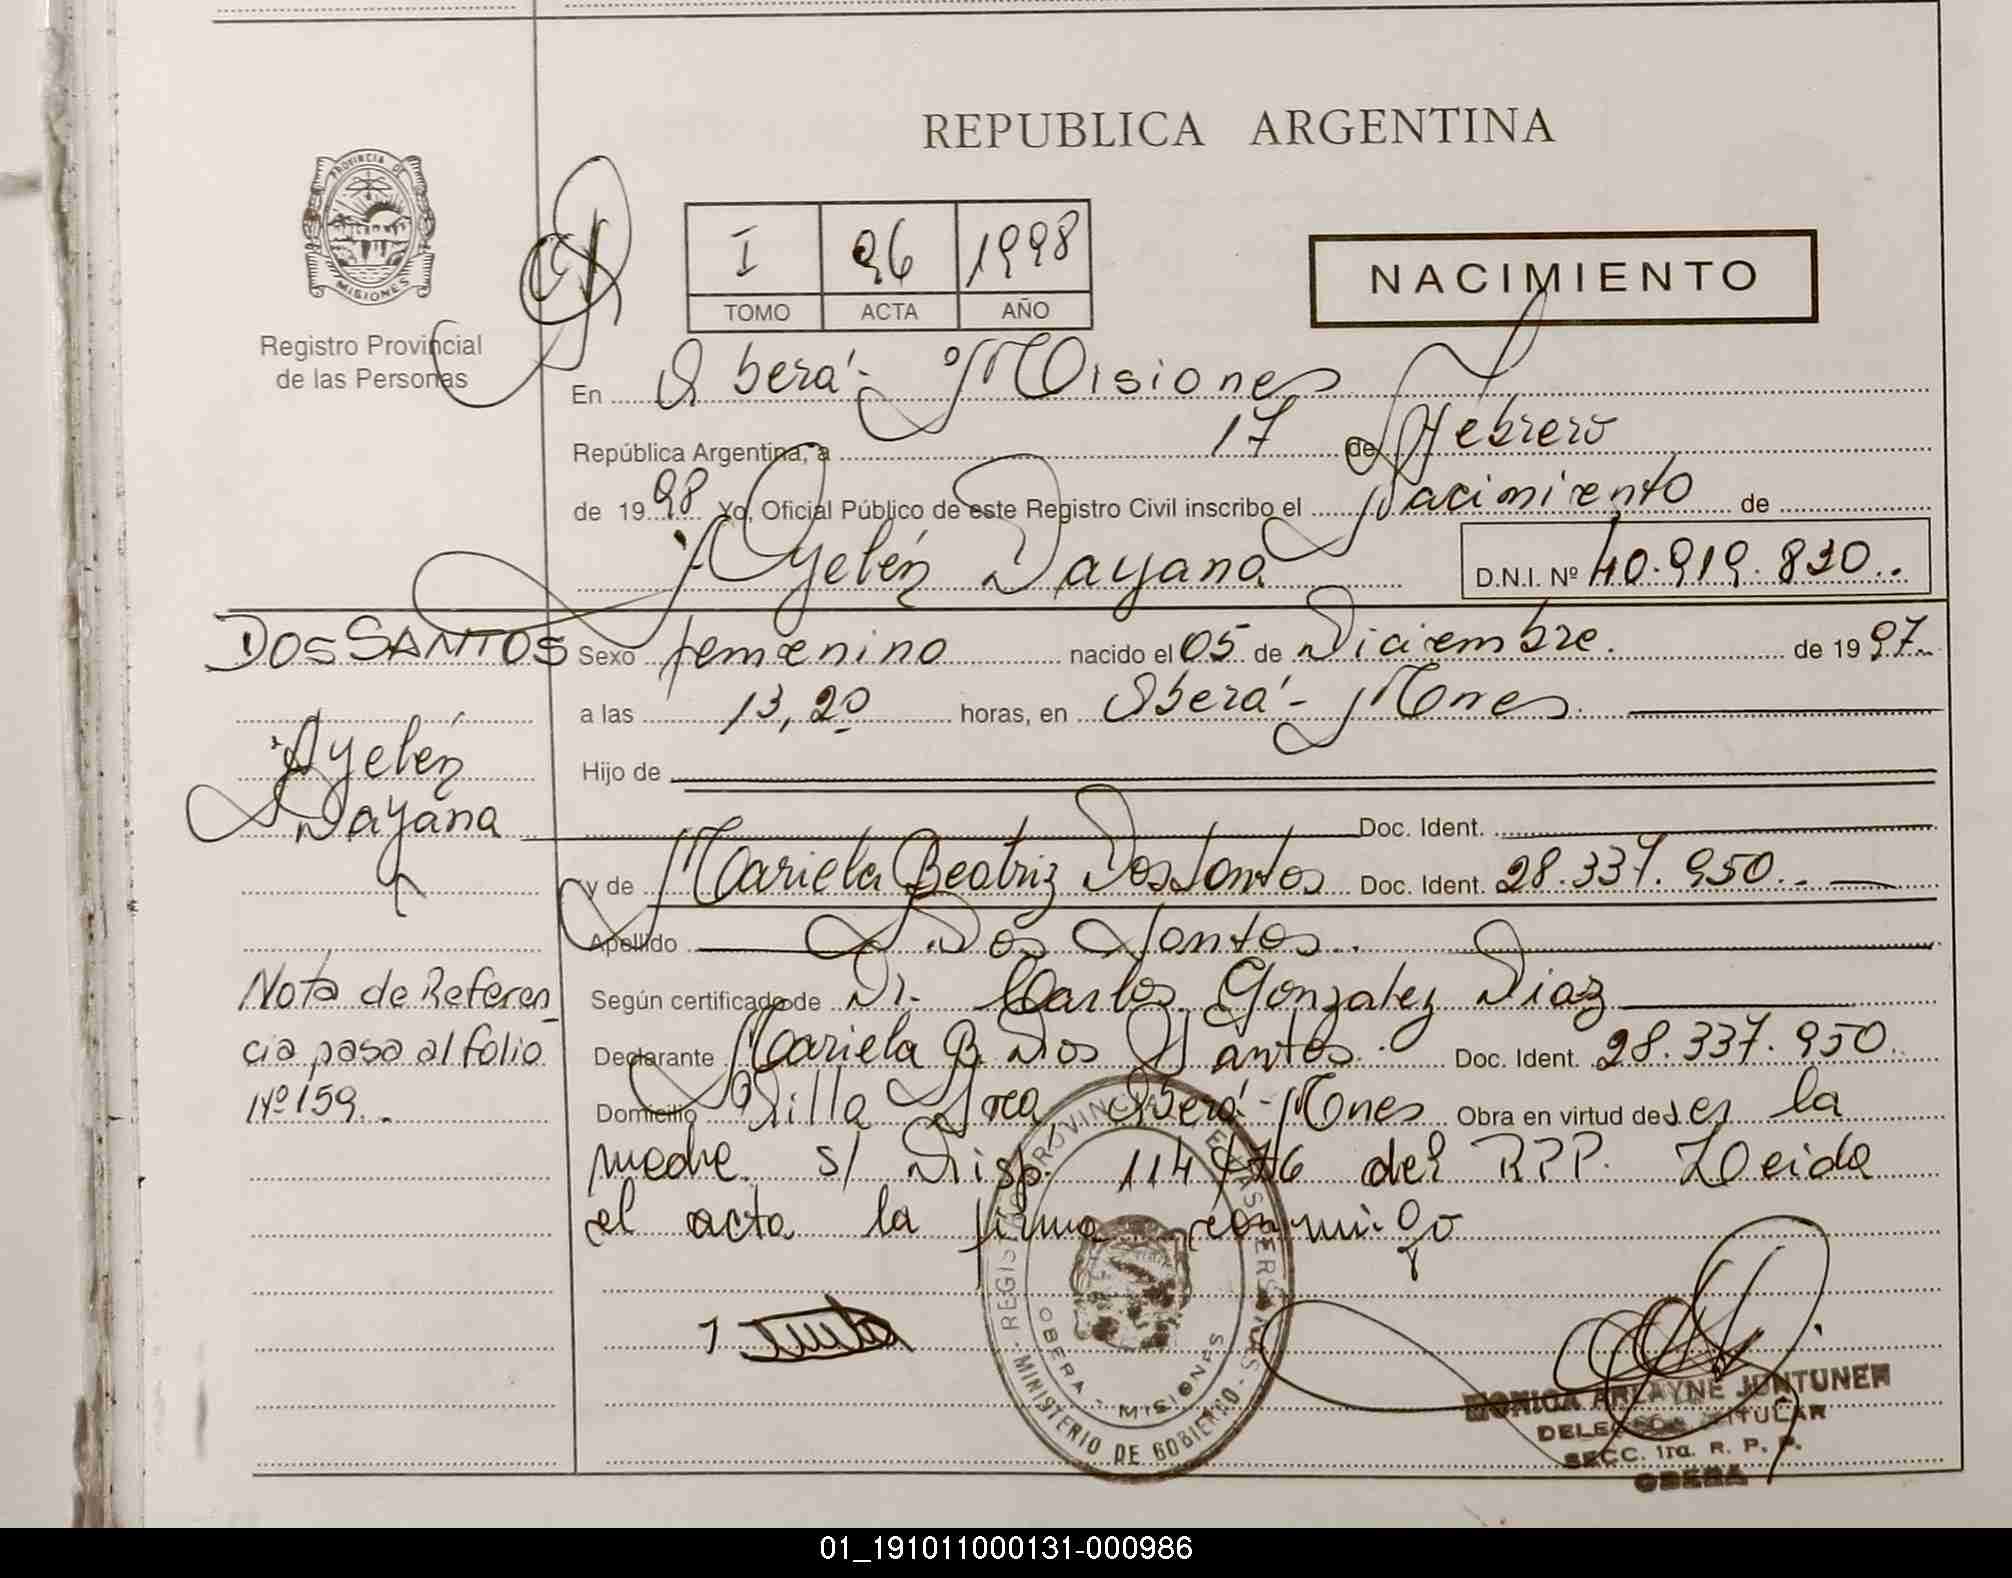 REPUBLICA ARGENTINA
PROVINCIA DE MISIONES
Registro Provincial
de las Personas
I 96 1998
TOMO ACTA AÑO
NACIMIENTO
En Oberá - Misiones
República Argentina, a 17 de Febrero
de 1998 Yo, Oficial Público de este Registro Civil inscribo el Nacimiento de
Ayelén Dayana D.N.I. Nº 40.919.830..
DOS SANTOS
Ayelén
Dayana
Nota de Referen
cia pasa al folio
Nº 159..
Sexo femenino nacido el 05 de Diciembre. de 1997.
a las 13,20 horas, en Oberá - Mnes
Hijo de
Doc. Ident.
y de Mariela Beatriz Dos Santos Doc. Ident. 28.337.950.-
Apellido Dos Santos.
Según certificado de Dr. Carlos Gonzalez Diaz
Declarante Mariela B. Dos Santos. Doc. Ident. 28.337.950.
Domicilio Villa Oberá - Mnes Obra en virtud de ser la
madre s/ Disp. 114/76 del R.P.P. Leida
el acta la firma conmigo
REGISTRO PROVINCIAL DE LAS PERSONAS
MINISTERIO DE GOBIERNO
OBERA - MISIONES
MONICA ARLAYNE JUNTUNEN
DELEGADA TITULAR
SECC. 1ra. R. P. P.
OBERA
01_191011000131-000986